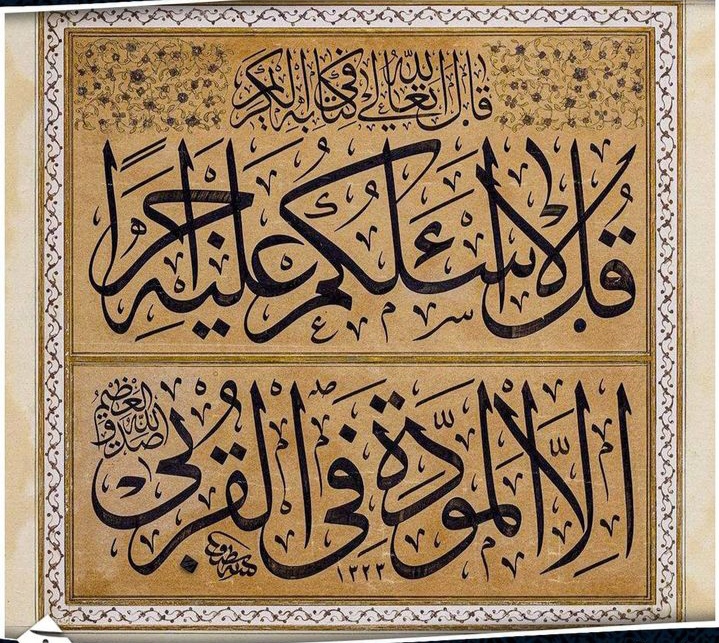 قال الله تعالى في كتابه الكريم
قل لا اسئلكم عليه اجرا
الا المودة في القربى
صدق الله العظيم
١٣٢٣